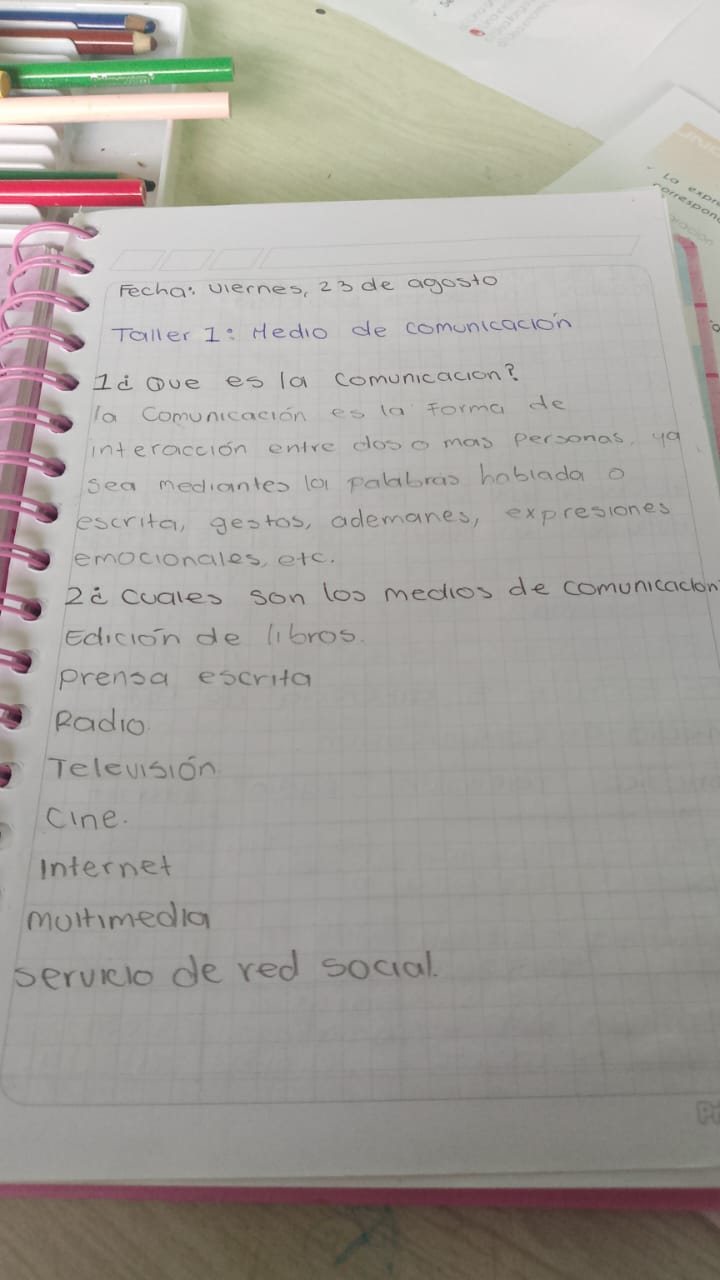 Fecha: Viernes, 23 de agosto
Taller 1: Medio de comunicación
1¿ Que es la comunicacion?
la Comunicación es la forma de
interacción entre dos o mas personas, ya
sea mediantes la palabras hablada o
escrita, gestos, ademanes, expresiones
emocionales, etc.
2¿ cuales son los medios de comunicacion
Edición de libros.
prensa escrita
Radio.
Televisión.
Cine.
Internet
multimedia
servicio de red social.
La expre
correspon